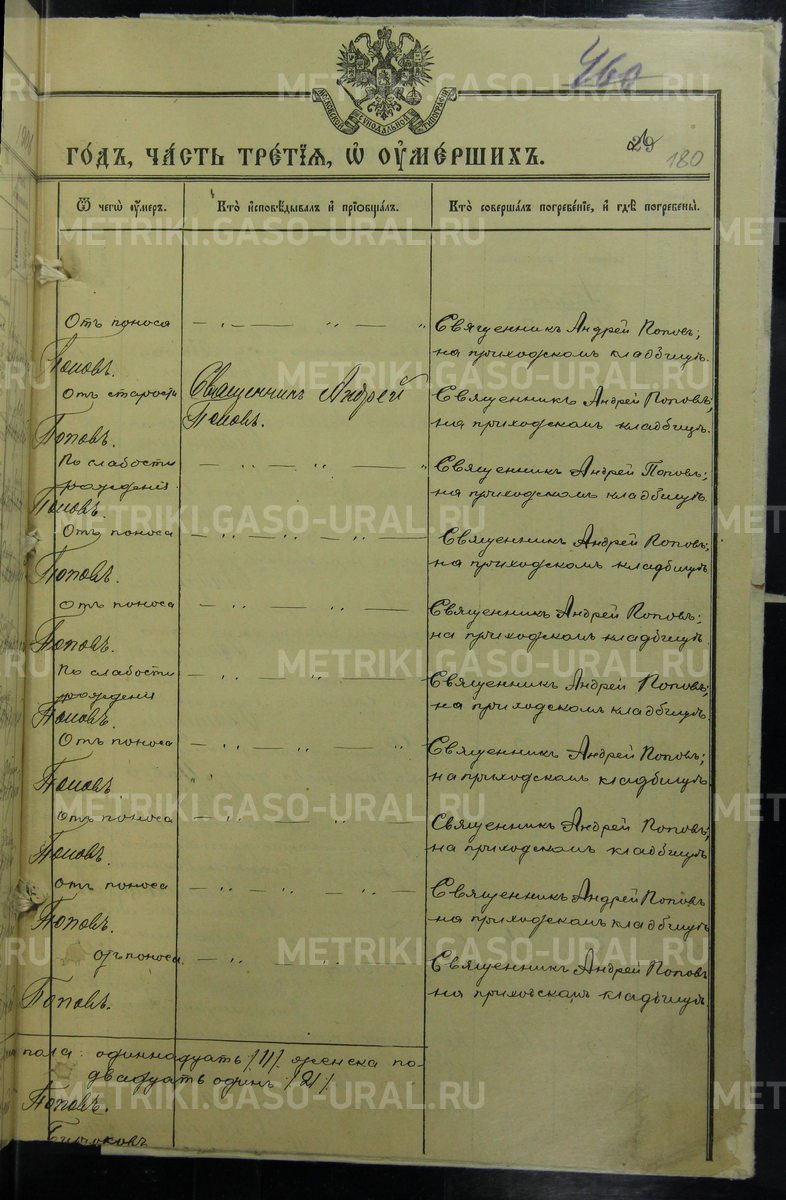 460
МОСКОВСКОЙ СѴНОДАЛЬНОЙ ТИПОГРАФІИ
29
180
ГО́ДЪ, ЧА́СТЬ ТРЕ́ТІѦ, Ѡ҆ ОУ҆МЕ́РШИХЪ.
Ѿ чегѡ̀ оу҆́меръ.
Кто̀ и҆сповѣ́дывалъ и҆ прїѡбща́лъ.
Кто̀ соверша́лъ погребе́нїе, и҆ гдѣ̀ погребены̀.
Отъ поноса — „ — „ — „ Священникъ Андрей Поповъ;
на приходскомъ кладбищѣ.
Поповъ.
Отъ старости Священникъ Андрей Священникъ Андрей Поповъ;
Поповъ. на приходскомъ кладбищѣ.
Поповъ.
По слабости — „ — „ — „ Священникъ Андрей Поповъ;
рожденія на приходскомъ кладбищѣ.
Поповъ.
Отъ поноса — „ — „ — „ — Священникъ Андрей Поповъ;
на приходскомъ кладбищѣ
Поповъ.
Отъ поноса — „ — „ — Священникъ Андрей Поповъ;
на приходскомъ кладбищѣ.
Поповъ.
По слабости — „ — „ — Священникъ Андрей Поповъ;
рожденія на приходскомъ кладбищѣ.
Поповъ.
Отъ поноса — „ — „ — „ Священникъ Андрей Поповъ;
на приходскомъ кладбищѣ.
Поповъ.
Отъ поноса — „ — „ — Священникъ Андрей Поповъ;
на приходскомъ кладбищѣ
Поповъ.
Отъ поноса — „ — „ — „ — Священникъ Андрей Поповъ
на приходскомъ кладбищѣ
Поповъ.
отъ поноса. — „ — „ — Священникъ Андрей Поповъ
на приходскомъ кладбищѣ.
Поповъ.
пола: одиннадцать /11/. женска по-
двадцать одинъ /21/.
Поповъ.
METRIKI.GASO-URAL.RU